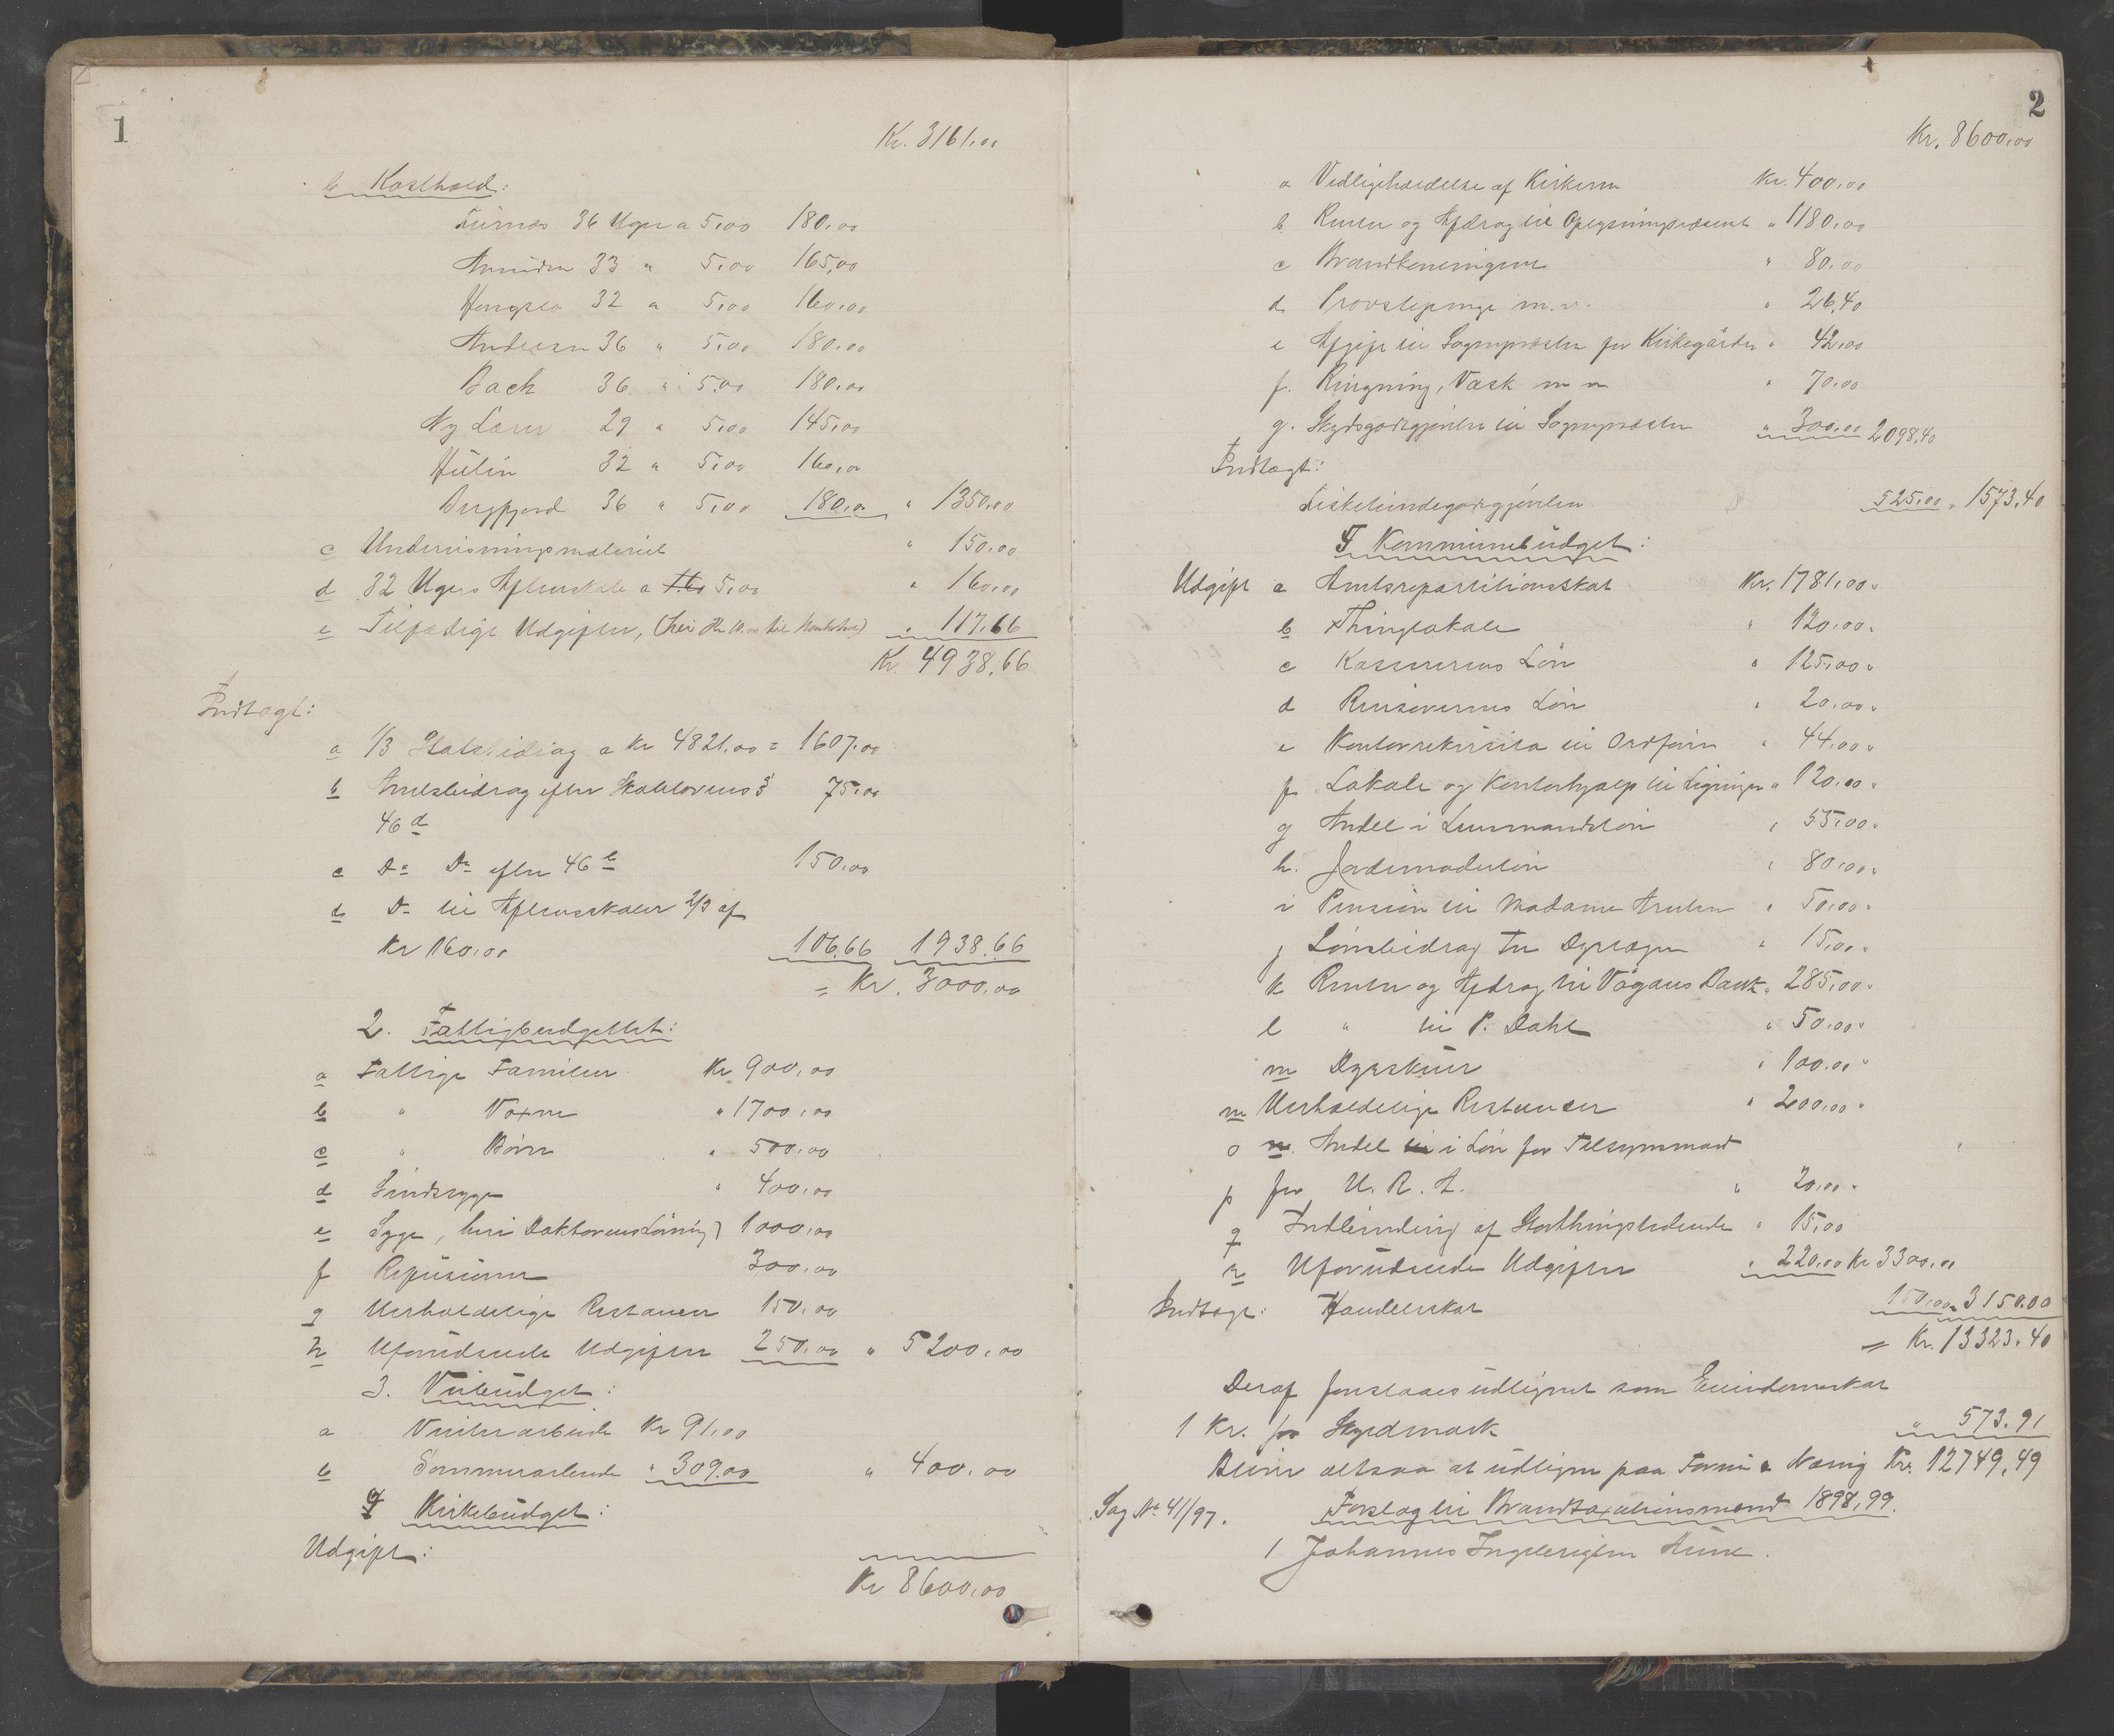 1
Kr. 3161,00
b Kosthold:
36 Uger a 5,00 180,00
33 " 5,00 165,00
32 " 5,00 160,00
Andersen 36 " 5,00 180,00
Bach 36 " 5,00 180,00
Ny Lærer 29 " 5,00 145,00
Hulin 32 " 5,00 160,00
Bergfjord 36 " 5,00 180,00 " 1350,00
c Undervisningsmateriel " 150,00
d 32 Ugers Aftenskole a 5,00 " 160,00
e Tilfældige Udgifter, " 117,66
Kr. 4938,66
Indtægt:
a 1/3 Statsbidrag a Kr 4821,00 = 1607,00
b Amtsbidrag efter Skolelovens § 75,00
46 d
c Do Do efter 46 b 150,00
d Do til Aftenskoler 2/3 af
Kr 160,00 106,66 1938,66
= Kr. 3000,00
2. Fattigbudgettet:
a Fattige Familier Kr 900,00
b " Voxne " 1700,00
c " Børn " 500,00
d Sindssyge " 400,00
e Syge, heri Doktorens Lønning) 1000,00
f Refusioner 300,00
g Uerholdelige Restancer 150,00
h Uforudseede Udgifter 250,00 " 5200,00
3. Veibudget:
a Vinterarbeide Kr 91,00
b Sommerarbeide " 309,00 " 400,00
4 Kirkebudget:
Udgift:
Kr 8600,00
2
Kr. 8600,00
a Vedligeholdelse af Kirkerne Kr. 400,00
b Renter og Afdrag til Oplysningsvæsenet " 1180,00
c Brandkontingent " 80,00
d Provstepenge m.v. " 26,40
e Afgift til Sognepresten for Kirkegården " 42,00
f. Ringning, Vask m m " 70,00
g. Skydsgodtgjørelse til Sognepresten " 300,00 2098,40
Indtægt:
Fisketiendegodtgjørelse 525,00 " 1573,40
5 Kommunebudget:
Udgift a Amtsrepartitionsskat Kr. 1781,00 "
b Thinglokale " 120,00 "
c Kassererens Løn " 125,00 "
d Revisorernes Løn " 20,00 "
e Kontorrekvisita til Ordfører " 44,00 "
f Lokale og Kontorhjælp til Ligningen " 120,00 "
g Andel i Lensmandsløn " 55,00 "
h. Jordemoderløn " 80,00 "
i Pension til Madame " 50,00 "
j Lønsbidrag til Dyrlægen " 15,00 "
k Renter og Afdrag til Vågans Bank " 285,00 "
l " til P. Dahl " 50,00 "
m Dyrskuer " 100,00 "
n Uerholdelige Restancer " 200,00 "
o Andel i Løn for Tilsynsmand
p for U. R. A. " 20,00 "
q Indbinding af Storthingstidende " 15,00
r Uforudseede Udgifter " 220,00 Kr 3300,00
Indtægt: Handelsskat 150,00 " 3150,00
= Kr. 13323,40
Deraf forslaaes udlignet som Eiendomsskat
1 Kr. for Skyldmark " 573,91
Bliver altsaa at udligne paa Formue & Næring Kr. 12749,49
Sag No 41/97. Forslag til Brandtaxationsmænd 1898,99.
1 Johannes Ingebrigtsen Aune.